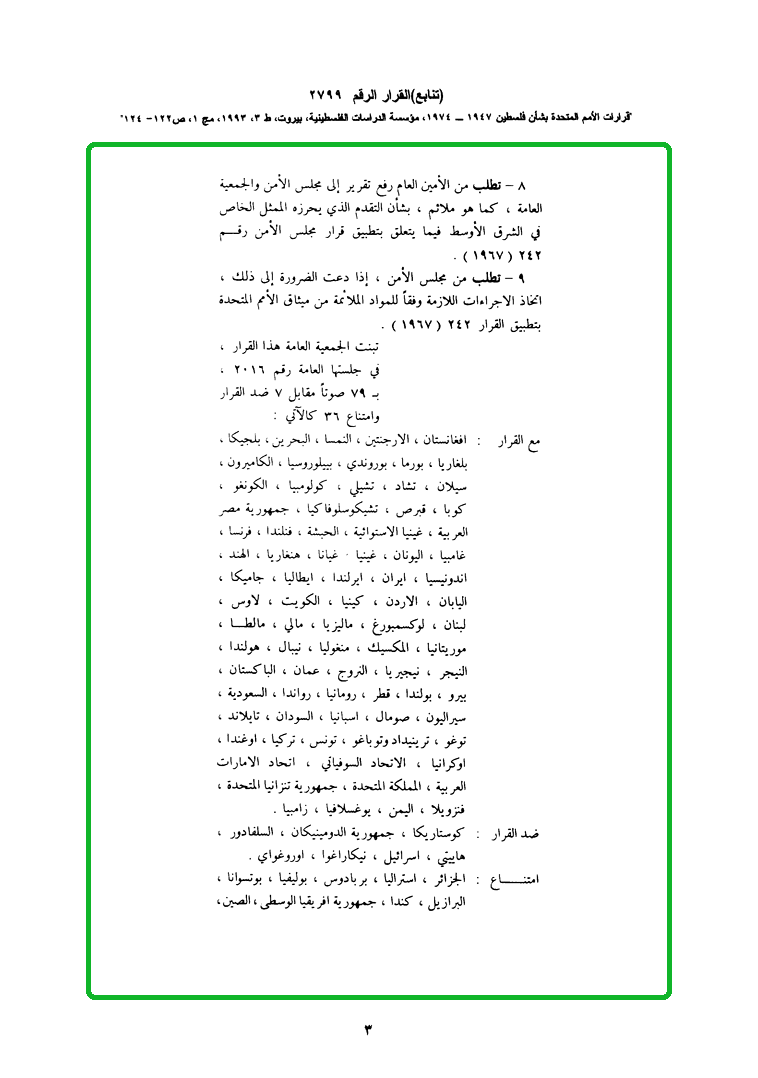 (تتابع)القرار الرقم ٢٧٩٩
"قرارات الأمم المتحدة بشأن فلسطين ١٩٤٧ – ١٩٧٤، مؤسسة الدراسات الفلسطينية، بيروت، ط ٣، ١٩٩٣، مج ١، ص١٢٢- ١٢٤"
٨ – تطلب من الأمين العام رفع تقرير إلى مجلس الأمن والجمعية
العامة ، كما هو ملائم ، بشأن التقدم الذي يحرزه الممثل الخاص
في الشرق الأوسط فيما يتعلق بتطبيق قرار مجلس الأمن رقـــم
٢٤٢ ( ١٩٦٧ ) .
٩ – تطلب من مجلس الأمن ، إذا دعت الضرورة إلى ذلك ،
اتخاذ الاجراءات اللازمة وفقاً للمواد الملائمة من ميثاق الأمم المتحدة
بتطبيق القرار ٢٤٢ ( ١٩٦٧ ) .
تبنت الجمعية العامة هذا القرار ،
في جلستها العامة رقم ٢٠١٦ ،
بـ ٧٩ صوتاً مقابل ٧ ضد القرار
وامتناع ٣٦ كالآتي :
مع القرار : افغانستان ، الارجنتين ، النمسا ، البحرين ، بلجيكا ،
بلغاريا ، بورما ، بوروندي ، بييلوروسيا ، الكاميرون ،
سيلان ، تشاد ، تشيلي ، كولومبيا ، الكونغو ،
كوبا ، قبرص ، تشيكوسلوفاكيا ، جمهورية مصر
العربية ، غينيا الاستوائية ، الحبشة ، فنلندا ، فرنسا ،
غامبيا ، اليونان ، غينيا ٠ غيانا ، هنغاريا ، الهند ،
اندونيسيا ، ايران ، ايرلندا ، ايطاليا ، جاميكا ،
اليابان ، الاردن ، كينيا ، الكويت ، لاوس ،
لبنان ، لوكسمبورغ ، ماليزيا ، مالي ، مالطـــا ،
موريتانيا ، المكسيك ، منغوليا ، نيبال ، هولندا ،
النيجر ، نيجيريا ، النروج ، عمان ، الباكستان ،
بيرو ، بولندا ، قطر ، رومانيا ، رواندا ، السعودية ،
سيراليون ، صومال ، اسبانيا ، السودان ، تايلاند ،
توغو ، ترينيداد وتوباغو ، تونس ، تركيا ، اوغندا ،
اوكرانيا ، الاتحاد السوفياتي ، اتحاد الامارات
العربية ، المملكة المتحدة ، جمهورية تنزانيا المتحدة ،
فنزويلا ، اليمن ، يوغسلافيا ، زامبيا .
ضد القرار : كوستاريكا ، جمهورية الدومينيكان ، السلفادور ،
هاييتي ، اسرائيل ، نيكاراغوا ، اوروغواي .
امتنـــــاع : الجزائر ، استراليا ، بربادوس ، بوليفيا ، بوتسوانا ،
البرازيل ، كندا ، جمهورية افريقيا الوسطى ، الصين،
٣